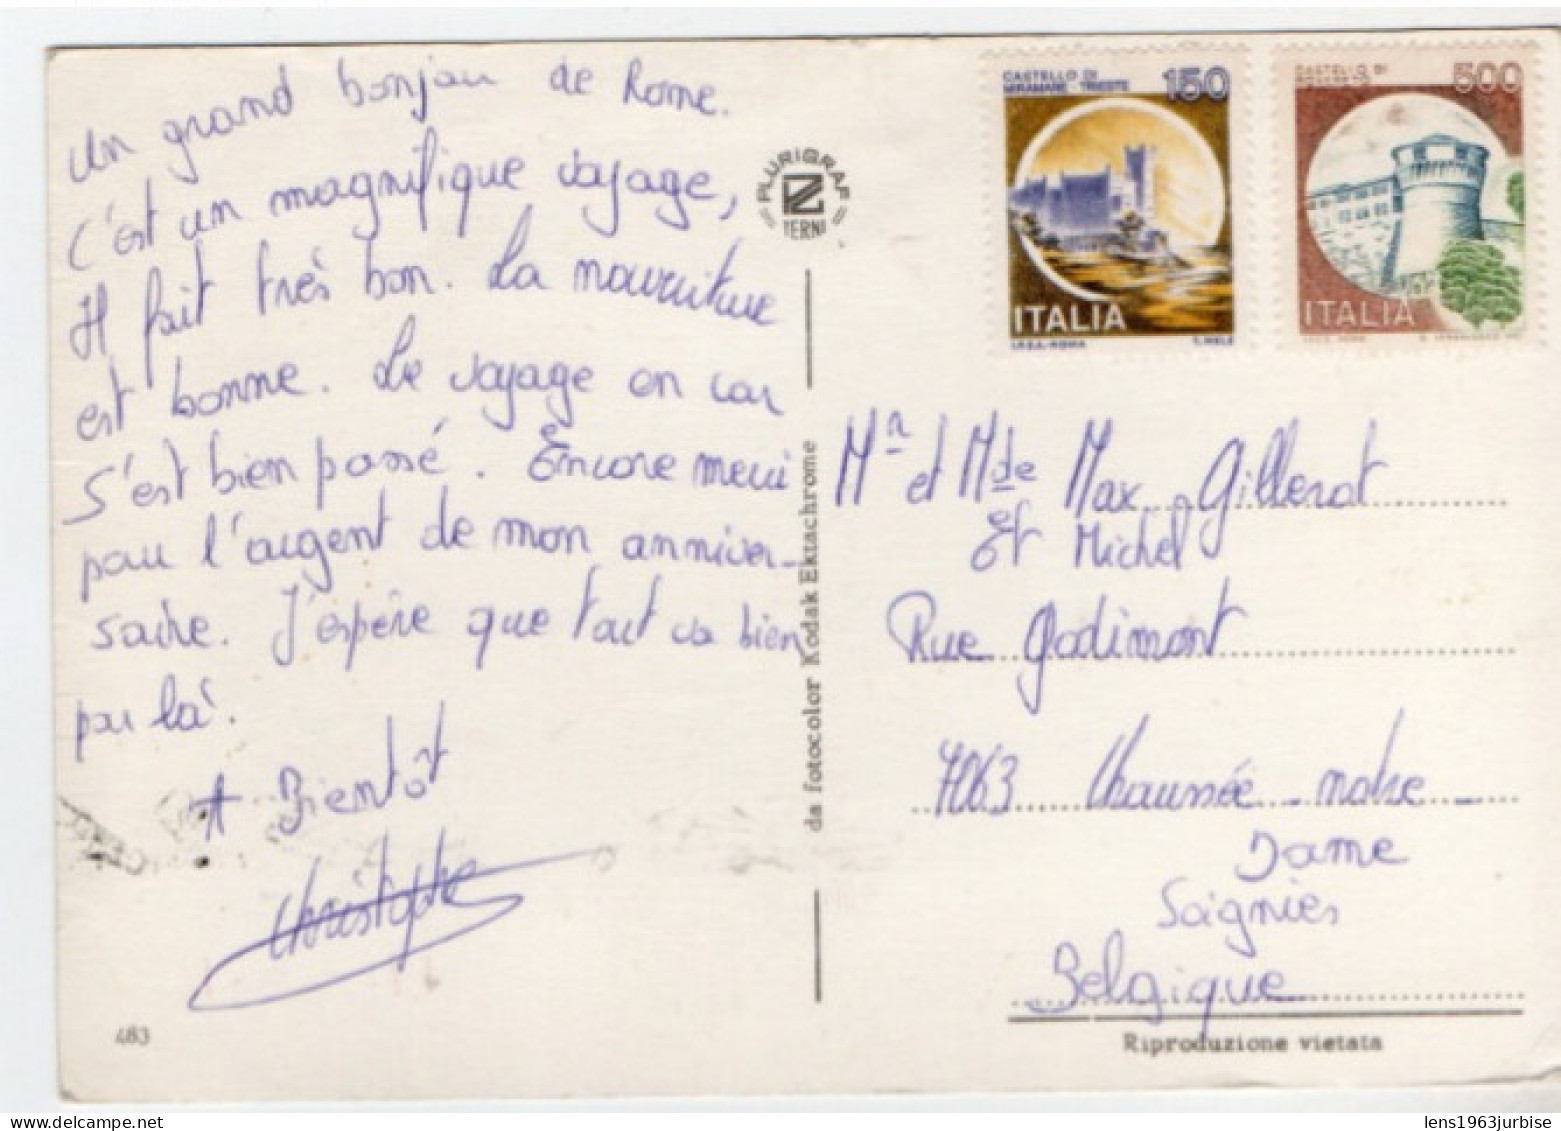 Un grand bonjou de Rome.
C'est un magnifique voyage,
Il fait très bon. La nourriture
est bonne. Le voyage en car
s'est bien passé. Encore merci
pour l'argent de mon anniver-
saire. J'espère que tout va bien
par là.
A Bientôt
Christophe
483
PLURIGRAF
TERNI
da fotocolor Kodak Ektachrome
CASTELLO DI
MIRAMARE - TRIESTE
150
ITALIA
I.P.Z.S. - ROMA
T. MELE
CASTELLO DI
500
ITALIA
Mr et Mde Max Gillerot
et Michel
Rue Godimont
7063 Chaussée - notre -
Dame
Soignies
Belgique
Riproduzione vietata
lens1963jurbise